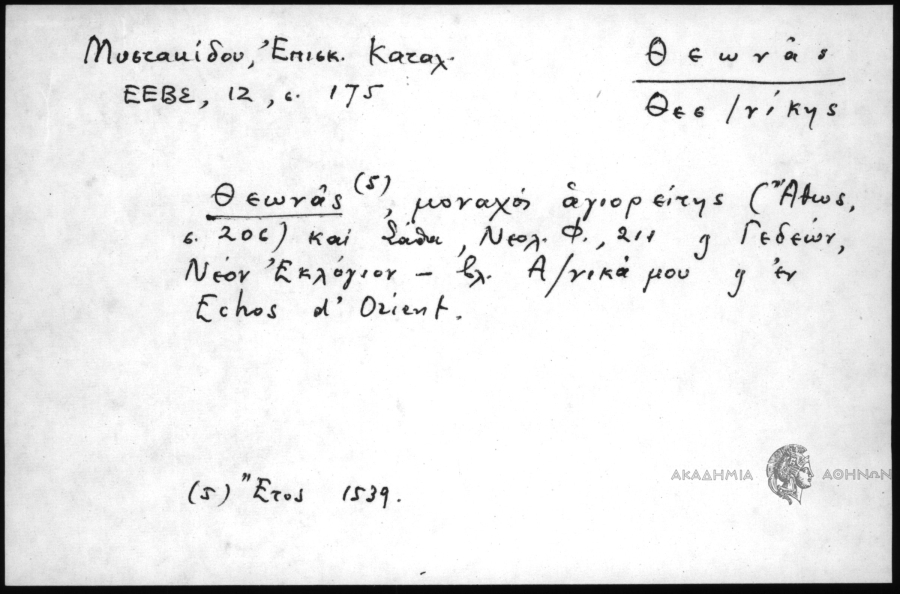 Μυστακίδου, Ἐπισκ. Καταχ.
ΕΕΒΣ, 12, σ. 175
Θεωνᾶς
Θεσ/νίκης
Θεωνᾶς (5), μοναχός ἁγιορείτης (Ἄθως,
σ. 206) καί Σάθα, Νεολ. Φ., 211 ϗ Γεδεών,
Νέον Ἐκλόγιον – βλ. Α/νικά μου ϗ ἐν
Echos d'Orient.
(5) Ἔτος 1539.
ΑΚΑΔΗΜΙΑ ΑΘΗΝΩΝ